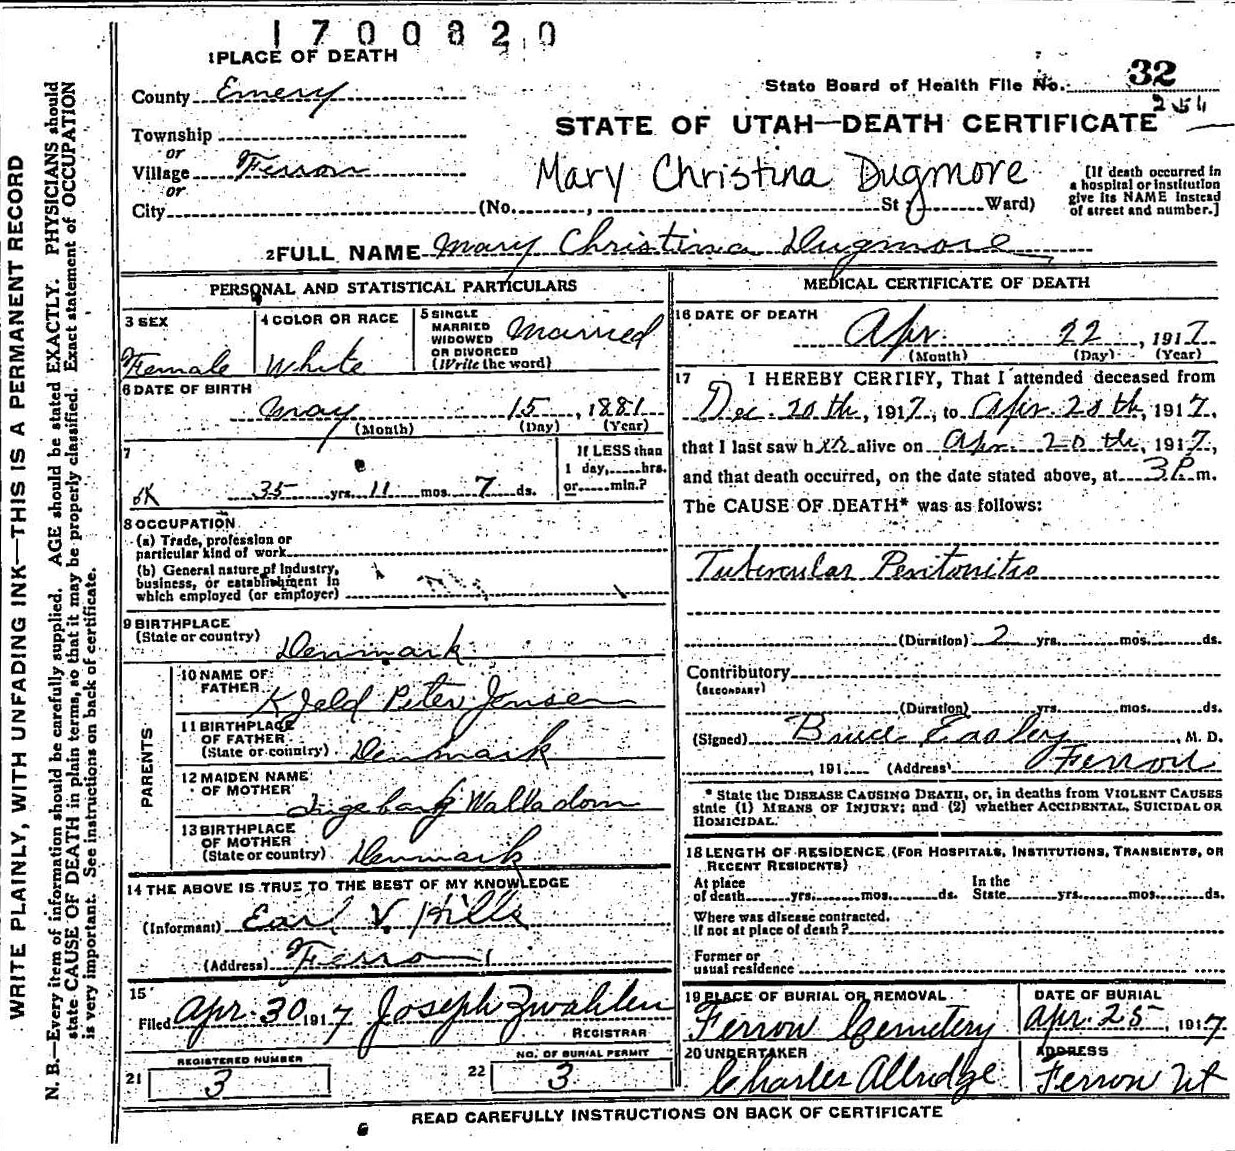 1700820
1 PLACE OF DEATH
County Emery
State Board of Health File No. 32
Township
or
STATE OF UTAH—DEATH CERTIFICATE
Village Ferron
or
Mary Christina Dugmore
City (No. , St ; Ward)
[If death occurred in
a hospital or institution
give its NAME instead
of street and number.]
2 FULL NAME Mary Christina Dugmore
PERSONAL AND STATISTICAL PARTICULARS
3 SEX
Female
4 COLOR OR RACE
White
5 SINGLE
MARRIED
WIDOWED
OR DIVORCED
(Write the word)
Married
6 DATE OF BIRTH
May 15, 1881
(Month) (Day) (Year)
7
OK 35 yrs. 11 mos. 7 ds.
If LESS than
1 day, hrs.
or min.?
8 OCCUPATION
(a) Trade, profession or
particular kind of work
(b) General nature of Industry,
business, or establishment in
which employed (or employer)
9 BIRTHPLACE
(State or country)
Denmark
PARENTS
10 NAME OF
FATHER
Kjeld Peter Jensen
11 BIRTHPLACE
OF FATHER
(State or country) Denmark
12 MAIDEN NAME
OF MOTHER
13 BIRTHPLACE
OF MOTHER
(State or country) Denmark
14 THE ABOVE IS TRUE TO THE BEST OF MY KNOWLEDGE
(Informant) Earl V. Hills
(Address) Ferron
15
Filed Apr. 30 1917 Joseph Zwahlen
REGISTRAR
REGISTERED NUMBER
21 3
NO. OF BURIAL PERMIT
22 3
MEDICAL CERTIFICATE OF DEATH
16 DATE OF DEATH
Apr. 22, 1917
(Month) (Day) (Year)
17 I HEREBY CERTIFY, That I attended deceased from
Dec. 20th, 1917, to Apr. 20th, 1917,
that I last saw her alive on Apr. 20th, 1917,
and that death occurred, on the date stated above, at 3 P. m.
The CAUSE OF DEATH* was as follows:
Tubercular Peritonitis
(Duration) 2 yrs. mos. ds.
Contributory
(SECONDARY)
(Duration) yrs. mos. ds.
(Signed) Bruce Easley, M. D.
, 191 (Address) Ferron
* State the DISEASE CAUSING DEATH, or, in deaths from VIOLENT CAUSES
state (1) MEANS OF INJURY; and (2) whether ACCIDENTAL, SUICIDAL OR
HOMICIDAL.
18 LENGTH OF RESIDENCE (FOR HOSPITALS, INSTITUTIONS, TRANSIENTS, OR
RECENT RESIDENTS)
At place In the
of death yrs. mos. ds. State yrs. mos. ds.
Where was disease contracted.
If not at place of death?
Former or
usual residence
19 PLACE OF BURIAL OR REMOVAL
Ferron Cemetery
DATE OF BURIAL
Apr. 25, 1917
20 UNDERTAKER
Charles Allredge
ADDRESS
Ferron Ut
READ CAREFULLY INSTRUCTIONS ON BACK OF CERTIFICATE
WRITE PLAINLY, WITH UNFADING INK—THIS IS A PERMANENT RECORD
N. B.—Every item of information should be carefully supplied. AGE should be stated EXACTLY. PHYSICIANS should
state CAUSE OF DEATH in plain terms, so that it may be properly classified. Exact statement of OCCUPATION
is very important. See instructions on back of certificate.